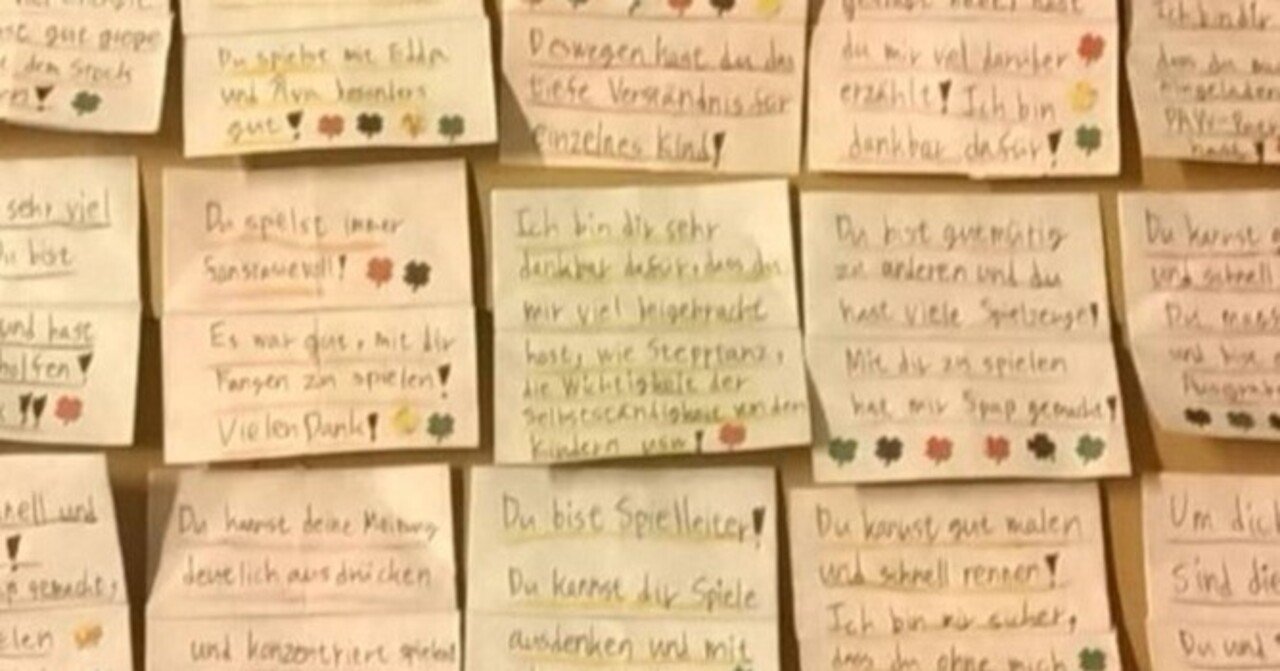 gut gepe
dem Stock
Du spielst mit Edda
und Ava besonders
gut!
Deswegen hast du das
tiefe Verständnis für
einzelnes Kind!
du mir viel darüber
erzählt! Ich bin
dankbar dafür!
Ich bin dir
eingeladen
hast!
sehr viel
Du bist
und hast
holfen!
Du spielst immer
Es war gut, mit dir
Fangen zu spielen!
Vielen Dank!
Ich bin dir sehr
dankbar dafür, dass du
mir viel beigebracht
hast, wie Stepptanz,
die Wichtigkeit der
Selbstständigkeit von den
Kindern usw!
Du bist gutmütig
zu anderen und du
hast viele Spielzeuge!
Mit dir zu spielen
hat mir Spaß gemacht!
Du kannst
und schnell
Du
und bist
nell und
gemacht,
elen
Du kannst deine Meinung
deutlich ausdrücken
und konzentriert spielst
Du bist Spielleiter!
Du kannst dir Spiele
ausdenken und mit
Du kannst gut malen
und schnell rennen!
Ich bin mir sicher,
dass du ohne mich
Um dich
Sind die
Du und